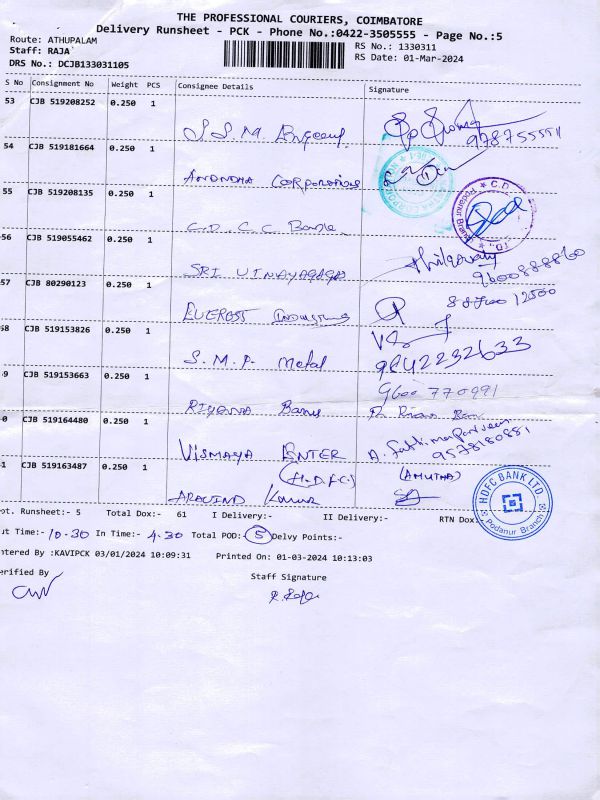 THE PROFESSIONAL COURIERS, COIMBATORE
Delivery Runsheet - PCK - Phone No.:0422-3505555 - Page No.:5
Route: ATHUPALAM
RS No.: 1330311
Staff: RAJA
RS Date: 01-Mar-2024
DRS No.: DCJB133031105
S No Consignment No Weight PCS Consignee Details Signature
53 CJB 519208252 0.250 1
S S M
9787555511
54 CJB 519181664 0.250 1
CORPORATIONS
55 CJB 519208135 0.250 1
C.D. C.C Bank
56 CJB 519055462 0.250 1
SRI VINAYAGAGAS
9600888860
57 CJB 80290123 0.250 1
EVEREST INDUSTRIES
58 CJB 519153826 0.250 1
S.M.P. Metal
9842232633
9 CJB 519153663 0.250 1
9600 770991
0 CJB 519164480 0.250 1
VISMAYA ENTER
9578180881
1 CJB 519163487 0.250 1
(H.D.F.C.) (AMUTHA)
ARAVIND Kumar
HDFC BANK LTD.
Podanur Branch
ot. Runsheet:- 5 Total Dox:- 61 I Delivery:- II Delivery:- RTN Dox:
ut Time:- 10.30 In Time:- 4.30 Total POD:- 5 Delvy Points:-
ntered By :KAVIPCK 03/01/2024 10:09:31 Printed On: 01-03-2024 10:13:03
erified By
Staff Signature